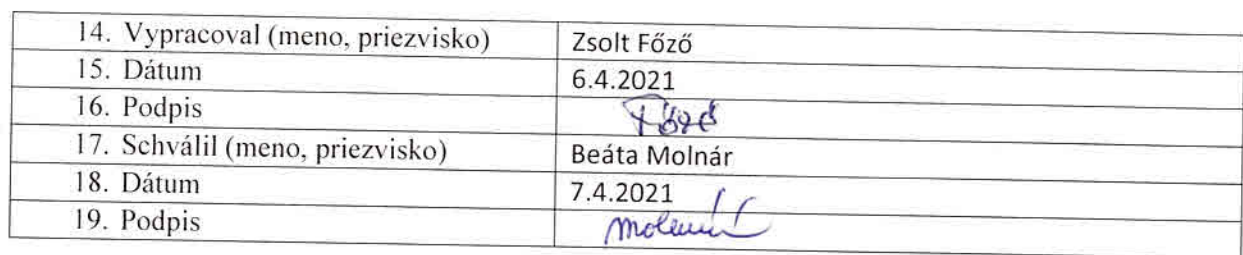 14. Vypracoval (meno, priezvisko) Zsolt Főző
15. Dátum 6.4.2021
16. Podpis Főző
17. Schválil (meno, priezvisko) Beáta Molnár
18. Dátum 7.4.2021
19. Podpis Molnár